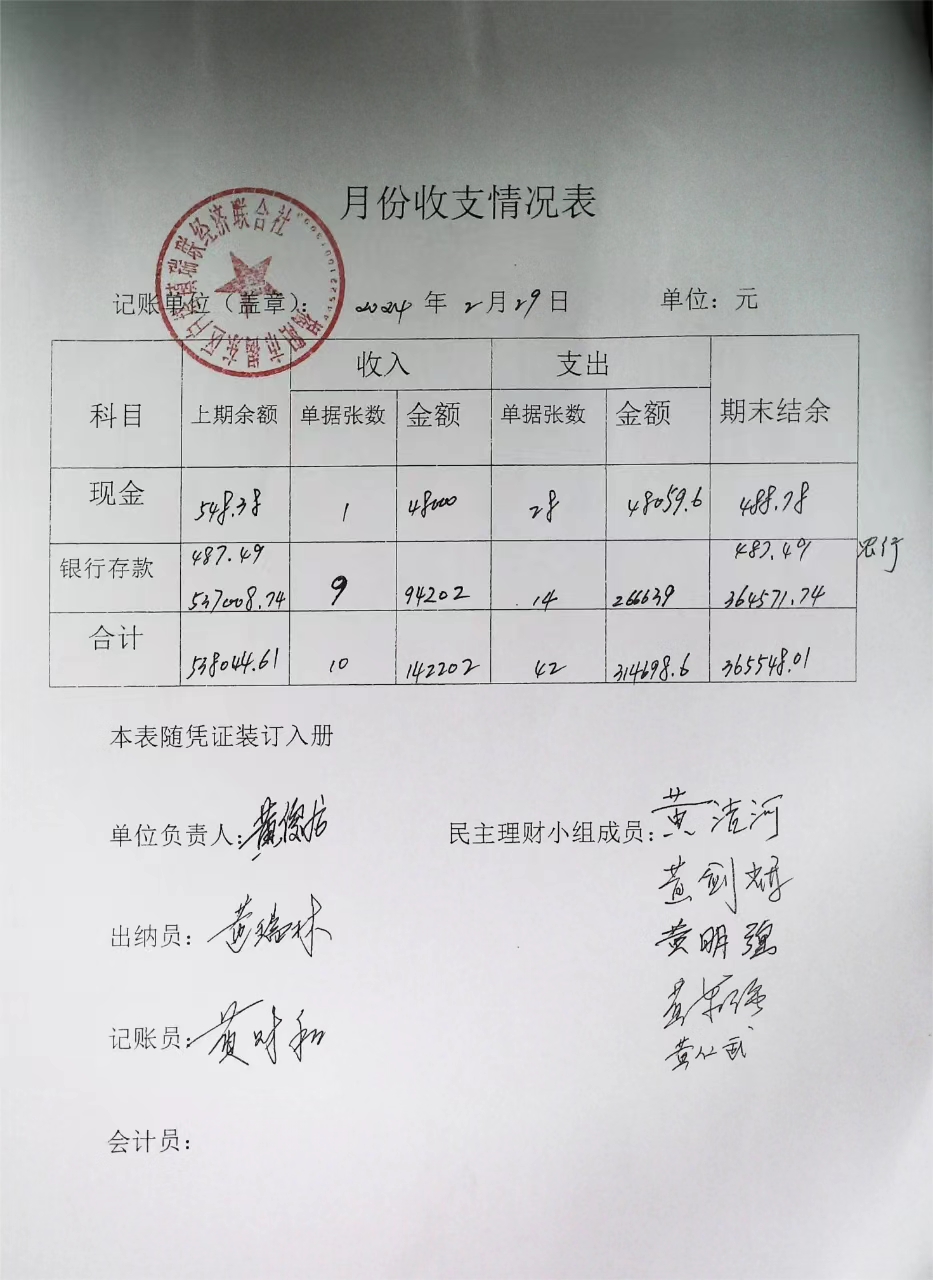 月份收支情况表
记账单位（盖章）： 2024 年 2 月 29 日 单位：元
科目 上期余额 收入 支出 期末结余
单据张数 金额 单据张数 金额
现金 548.38 1 48000 28 48059.6 488.78
487.49 487.49 农行
银行存款 537008.74 9 94202 14 266639 364571.74
合计 538044.61 10 142202 42 314698.6 365548.01
本表随凭证装订入册
单位负责人：黄俊
民主理财小组成员：黄 河
黄剑
出纳员：黄瑞林
黄明强
黄
记账员：黄时和
黄仁武
会计员：
揭阳市揭东区 镇瑞联经济联合社